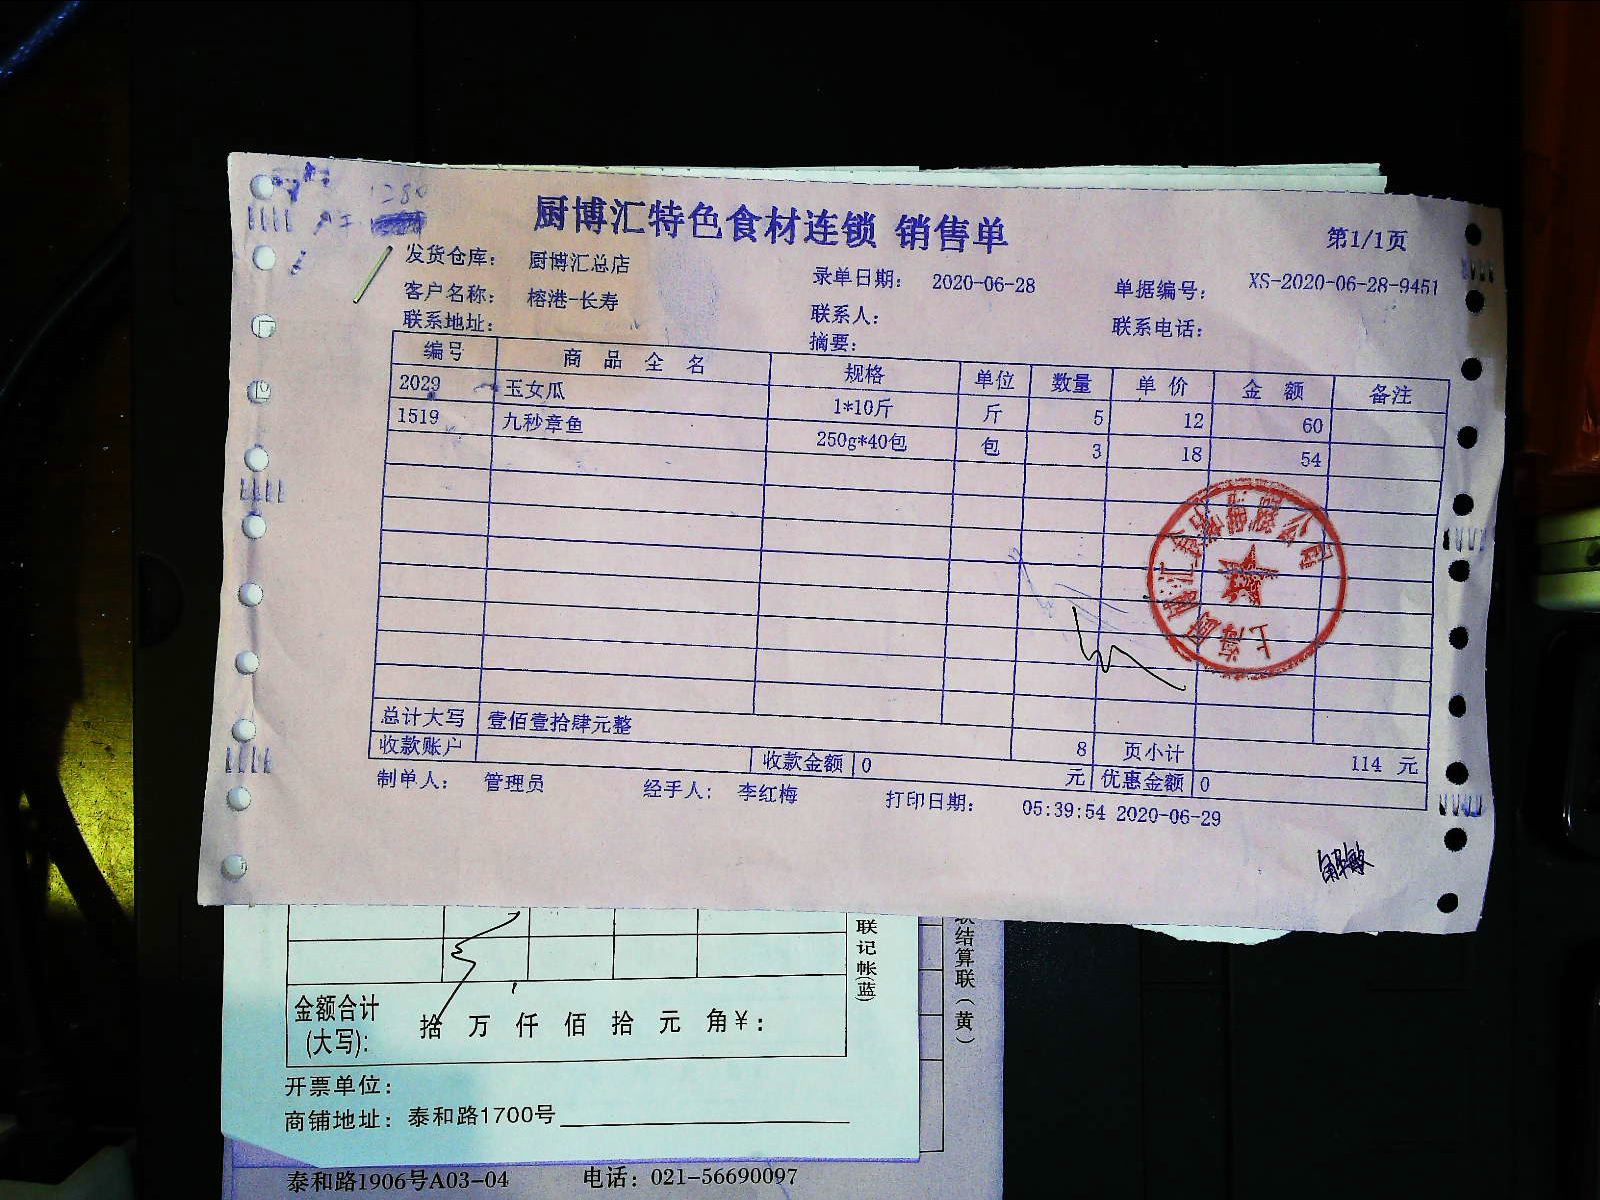 1280
厨博汇特色食材连锁 销售单
第1/1页
发货仓库： 厨博汇总店
录单日期： 2020-06-28
单据编号： XS-2020-06-28-9451
客户名称： 榕港-长寿
联系人：
联系电话：
联系地址：
摘要：
编号 商 品 全 名 规格 单位 数量 单 价 金 额 备注
2029 玉女瓜 1*10斤 斤 5 12 60
1519 九秒章鱼 250g*40包 包 3 18 54
总计大写 壹佰壹拾肆元整 8 页小计 114 元
收款账户 收款金额 0 元 优惠金额 0
制单人： 管理员 经手人： 李红梅 打印日期： 05:39:54 2020-06-29
联记帐(蓝)
联结算联(黄)
金额合计
(大写):
拾 万 仟 佰 拾 元 角￥:
开票单位:
商铺地址: 泰和路1700号
泰和路1906号A03-04 电话: 021-56690097